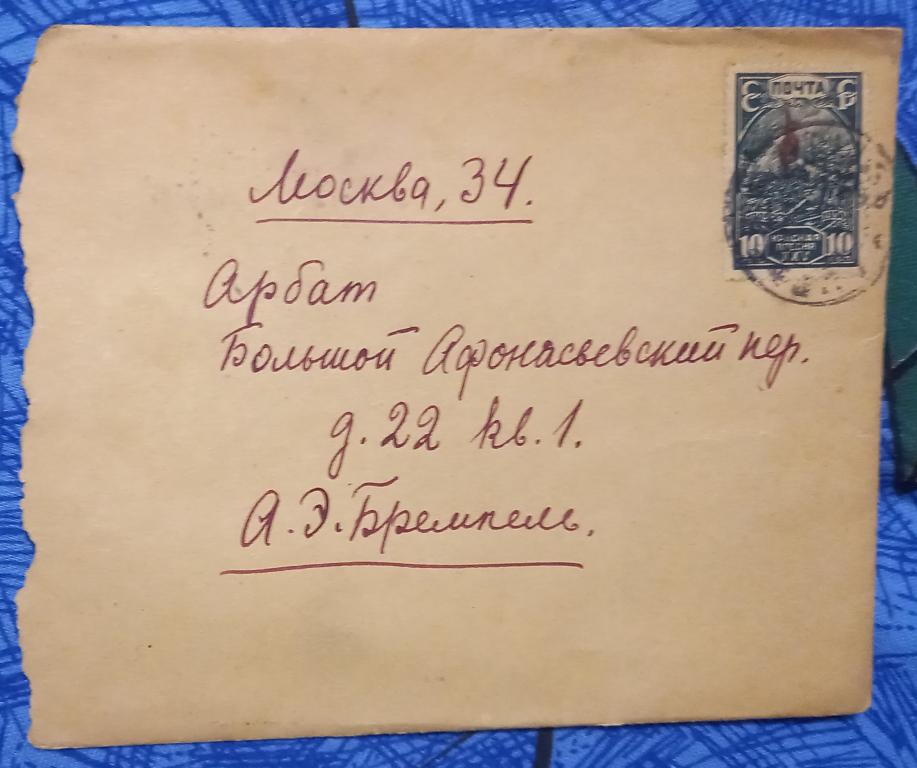 ПОЧТА
Москва, 34.
Арбат
Большой Афонасьевский пер.
д. 22 кв. 1.
А. Э. Бремпель.
10 КРАСНАЯ ПРЕСНЯ 10